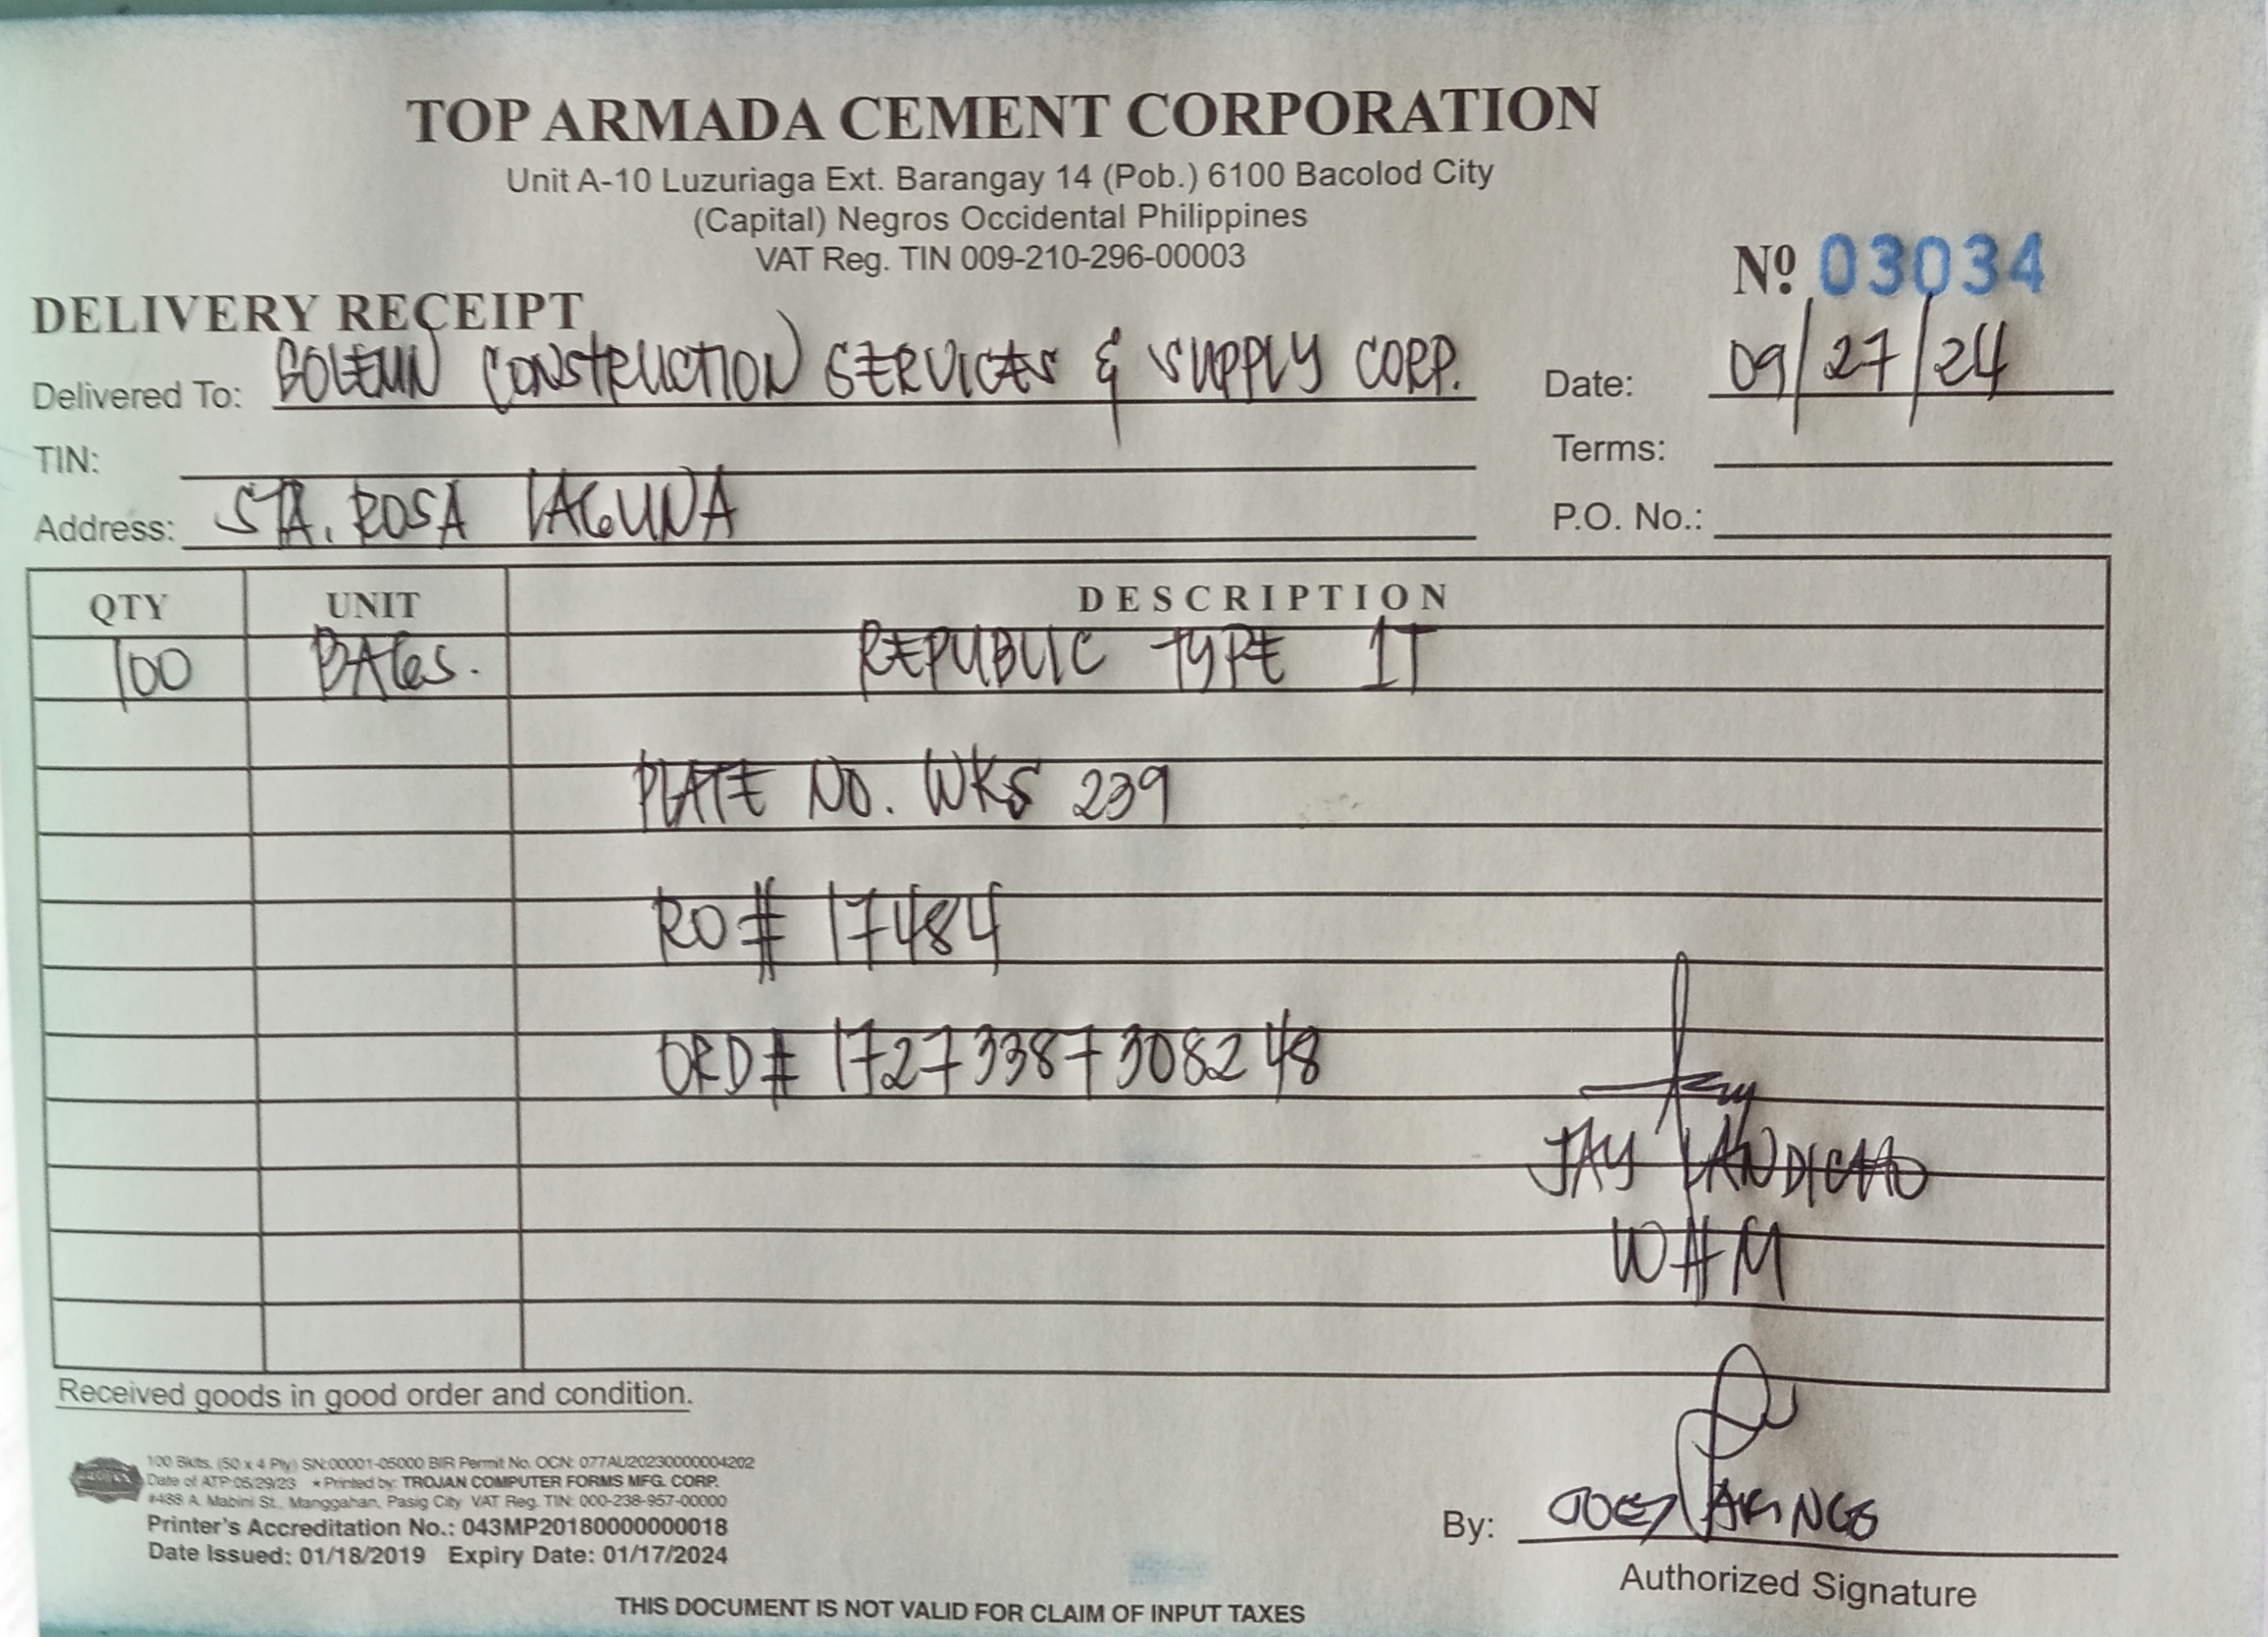 TOP ARMADA CEMENT CORPORATION
Unit A-10 Luzuriaga Ext. Barangay 14 (Pob.) 6100 Bacolod City
(Capital) Negros Occidental Philippines
VAT Reg. TIN 009-210-296-00003
Nº 03034
DELIVERY RECEIPT
Delivered To: GOLEMN CONSTRUCTION SERVICES & SUPPLY CORP. Date: 09/27/24
TIN: Terms:
Address: STA. ROSA LAGUNA P.O. No.:
QTY UNIT DESCRIPTION
100 BAGS. REPUBLIC TYPE 1T
PLATE NO. WKS 239
RO# 17484
ORD# 17273387308248
JAY LANDICHO
WHM
Received goods in good order and condition.
100 Bklts. (50 x 4 Ply) SN:00001-05000 BIR Permit No. OCN: 077AU20230000004202
Date of ATP:05/29/23 * Printed by: TROJAN COMPUTER FORMS MFG. CORP.
#488 A. Mabini St., Manggahan, Pasig City VAT Reg. TIN: 000-238-957-00000
Printer's Accreditation No.: 043MP20180000000018
Date Issued: 01/18/2019 Expiry Date: 01/17/2024
By: JOEY
Authorized Signature
THIS DOCUMENT IS NOT VALID FOR CLAIM OF INPUT TAXES